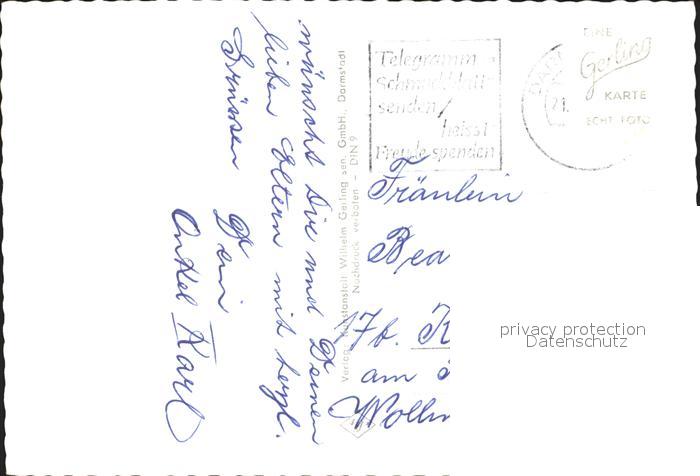 wünscht Dir und Deinen
lieben Eltern mit herzl.
Grüssen Dein
Onkel Karl
Verlag: Kunstanstalt Wilhelm Gerling sen. GmbH., Darmstadt
Nachdruck verboten - DIN 9
Telegramm -
Schmuckblatt
senden /
heisst
Freude spenden
EINE
Gerling
KARTE
ECHT FOTO
21.
Fräulein
Bea
17b. K
am
Wollm
privacy protection
Datenschutz